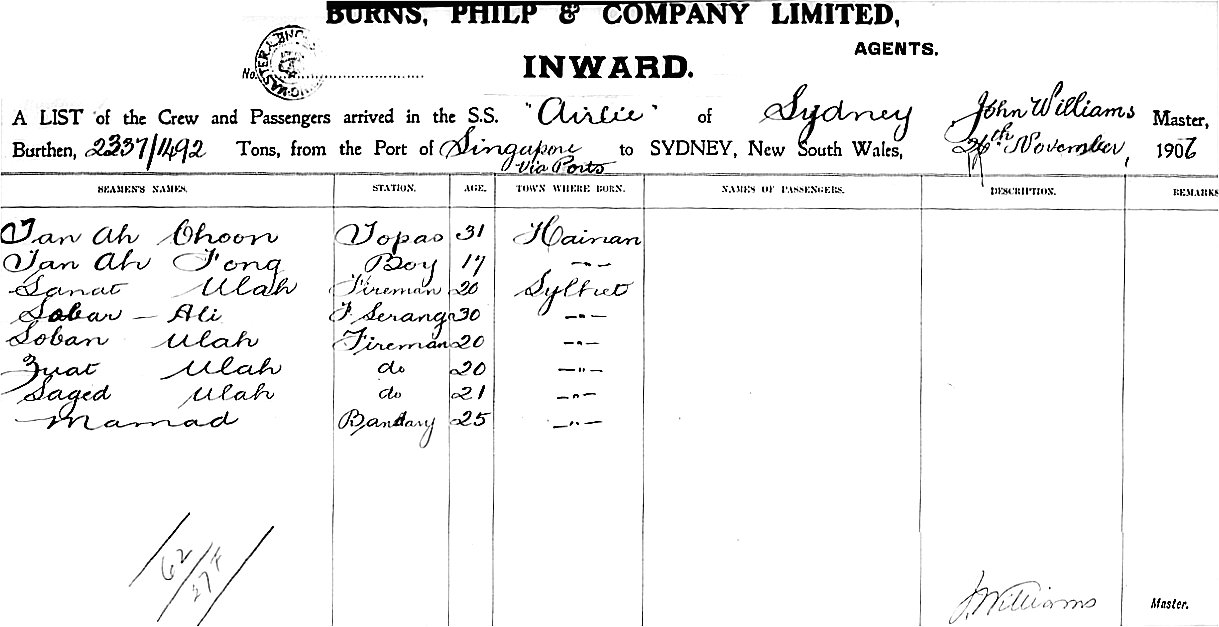 BURNS, PHILP & COMPANY LIMITED,
AGENTS.
No.
INWARD.
A LIST of the Crew and Passengers arrived in the S.S. "Airlie" of Sydney John Williams Master,
Burthen, 2337/1492 Tons, from the Port of Singapore via Ports to SYDNEY, New South Wales, 26th November, 1906
SEAMEN'S NAMES. STATION. AGE. TOWN WHERE BORN. NAMES OF PASSENGERS. DESCRIPTION. REMARKS
Tan Ah Choon Topas 31 Hainan
Tan Ah Fong Boy 17 —"—
Sanat Ulah Fireman 20 Sylhet
Sobar – Ali F Serang 30 —"—
Soban Ulah Fireman 20 —"—
Zuat Ulah do 20 —"—
Saged Ulah do 21 —"—
Mamad Bandary 25 —"—
62
274
J. Williams Master.